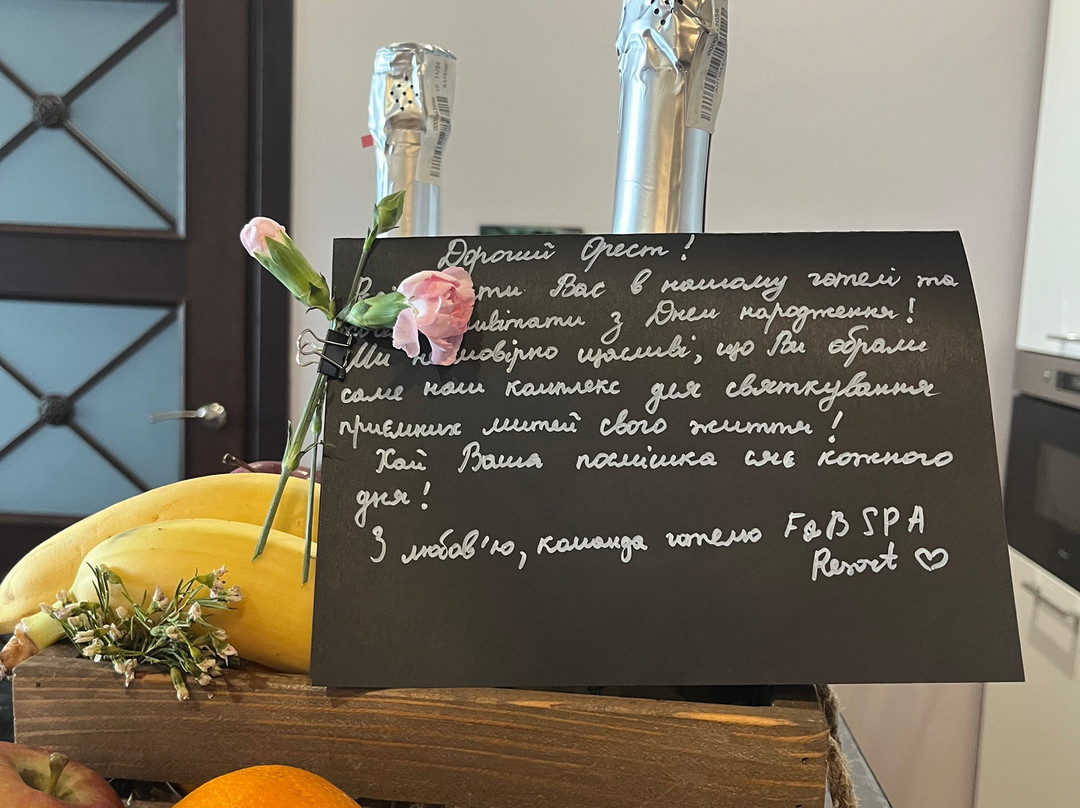 Дорогий Орест!
Вас в нашому готелі та
з Днем народження!
Ми неймовірно щасливі, що Ви обрали
саме наш комплекс для святкування
приємних митей свого життя!
Хай Ваша посмішка сяє кожного
дня!
З любов'ю, команда готелю F&B SPA
Resort ♡